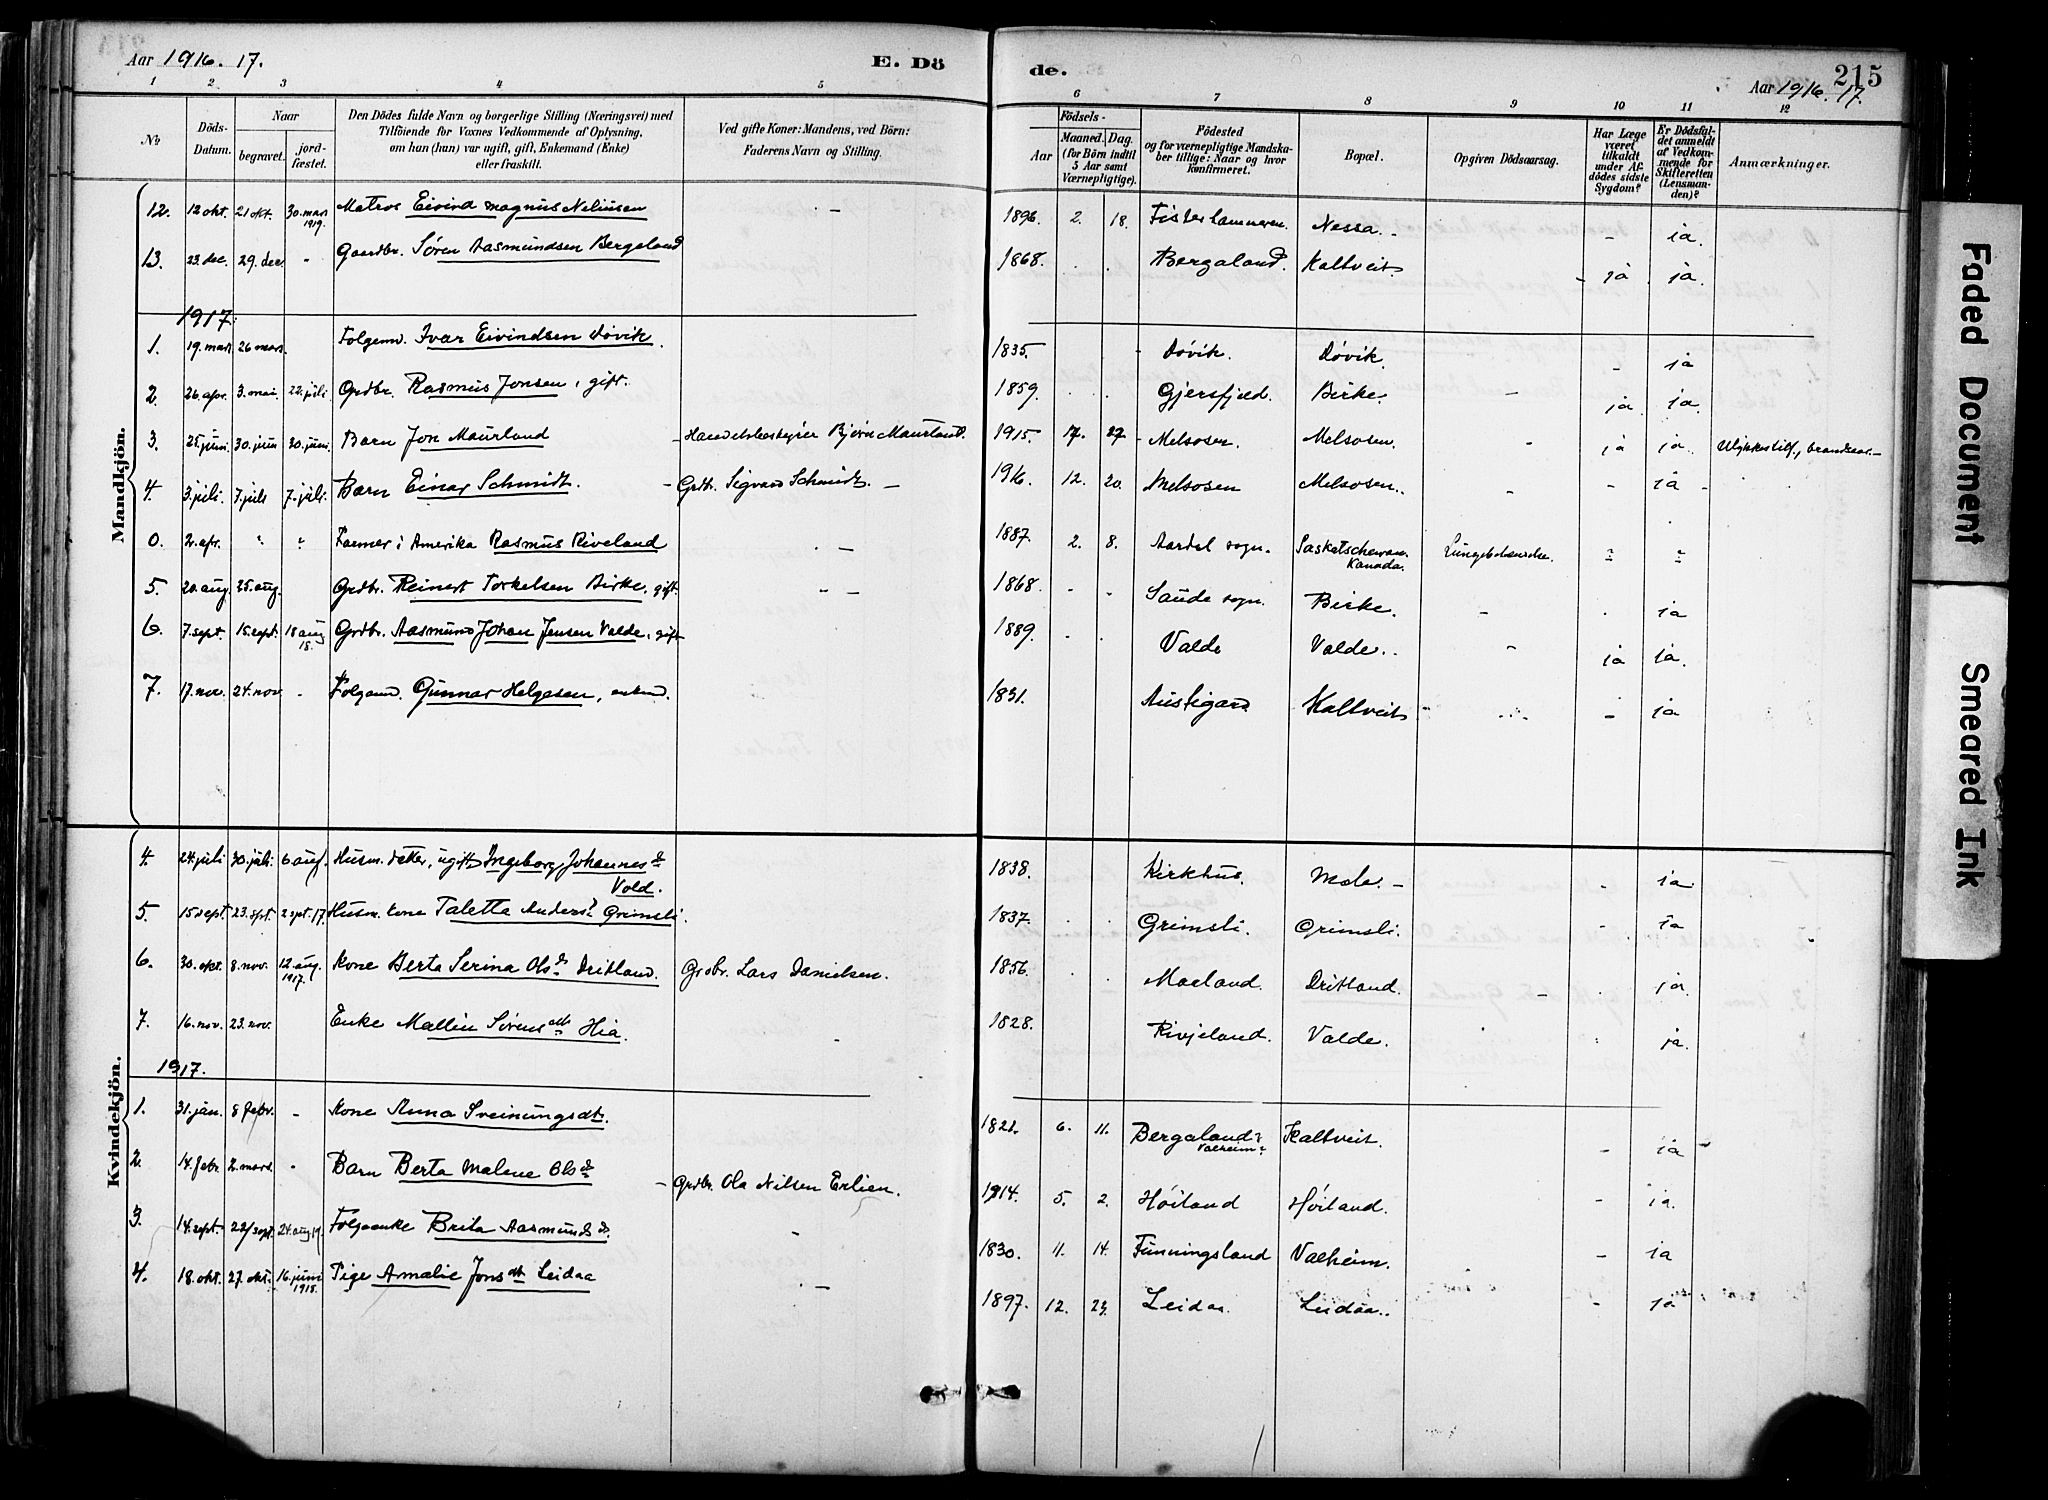 Aar 1916. 17. E. Dö
de. Aar 1916. 17. 215
1 2 3 4 5 6 7 8 9 10 11 12
No Döds-Datum. Naar begravet. jord-fæstet. Den Dödes fulde Navn og borgerlige Stilling (Næringsvei) med Tilföiende for Voxnes Vedkommende af Oplysning, om han (hun) var ugift, gift, Enkemand (Enke) eller fraskilt. Ved gifte Koner: Mandens, ved Börn: Faderens Navn og Stilling.
Födsels- Aar Maaned. Dag. (for Börn indtil 5 Aar samt Værnepligtige). Födested og for værnepligtige Mandskaber tillige: Naar og hvor konfirmeret. Bopæl. Opgiven Dödsaarsag. Har Læge været tilkaldt under Afdödes sidste Sygdom? Er Dödsfaldet anmeldt af Vedkommende for Skifteretten (Lensmanden)? Anmærkninger.
Mandkjön.
12. 12 okt. 21 okt. 30. mars 1919. Matros Eivind Magnus Neliusen - 1896. 2. 18. Nessa. - - ja.
13. 23. dec. 29. dec. " Gaardbr. Søren Aasmundsen Bergeland 1868. Bergaland. Kaltveit. - ja ja.
1917:
1. 19. mars 26 mars. Folgemd. Ivar Eivindsen Dövik. 1835. - Dövik. Dövik. - ja
2. 26. apr. 3. mai. 22. juli. Grdbr. Rasmus Jonsen, gift. 1859. Gjersfjeld. Birke. - ja ja.
3. 25. juni 30. juni 30. juni. Barn Jon Maurland - Handelsbestyrer Bjørn Maurland. 1915. 17. 27 - Melsosen. Melsosen. " ja ja.
4. 3. juli. 7. juli 7. juli. Barn Einar Schmidt. - Grdbr. Sigvard Schmidt. - 1916. 12. 20. Melsosen Melsosen. - - ja -
0. 2. apr. " " Farmer i Amerika Rasmus Riveland - 1887. 2. 8. Aardal sogn. Saskatschewan Kanada. " "
5. 20. aug. 25. aug. Grdbr. Reinert Torkelsen Birke, gift. - - 1868. Saude sogn. Birke. - ja
6. 7. sept. 15. sept. 18 aug 18. Grdbr. Aasmund Johan Jensen Valde, gift 1889. Valde Valde. - ja ja.
7. 17. nov. 24. nov. - Folgemd. Gunnar Helgesen, enkmd. 1831. Austigard Kaltveit - ja
Kvindekjön.
4. 24. juli 30. juli. 6 aug. Husm. datter, ugift Ingeborg Johannesd. Vold. 1838. Kirkhus. Mole. - - ja
5. 15 sept. 23. sept. 2 sept. 17. Husm. kone Taletta Andersd. Grimsli. 1837. Grimsli. Grimsli. - ja
6. 30. okt. 8. nov. 12. aug. 1917. Kone Berta Serina Olsd. Dritland. Grdbr. Lars Danielsen. 1856. Maeland. Dritland. - ja.
7. 16. nov. 23. nov. Enke Mallin Sørensdtr Hia. 1828. Rivjeland. Valde. ja.
1917.
1. 31. jan. 8 febr. - Kone Anna Sveinungsdtr. 1821. 6. 11. Bergaland Valheim? Kaltveit. - ja
2. 14. febr. 2. mars. - Barn Berta Malene Olsd. - Grdbr. Ola Nilsen Erlien. 1914. 5. 2. Høiland Høiland. - ja.
3. 14. sept. 22/sept. 24. aug 19. Folgeenke Brita Aasmundsd. - 1830. 11. 14. Funningsland Valheim. - ja
4. 18. okt. 27. okt. 16. juni 1918. Pige Amalie Jonsdtr Leidaa - 1897. 12. 23. Leidaa. Leidaa. - ja
Faded Document
Smeared Ink